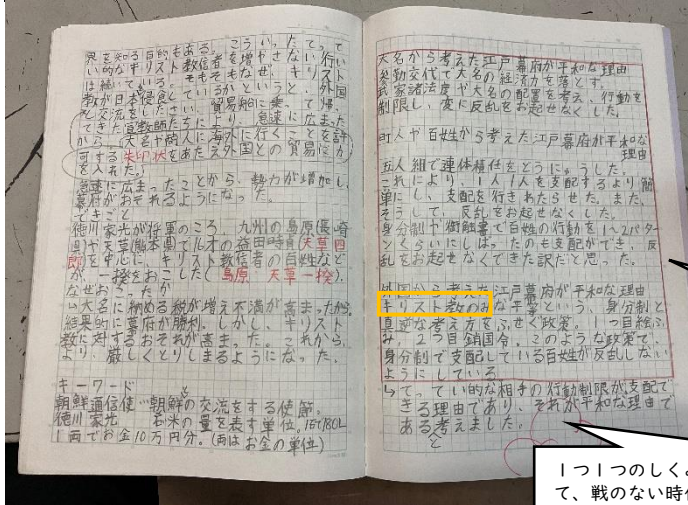 界を知る目的もある。こういったてって
い的なキリスト教信者を増やさない行い
は続いている。
そもそもなぜ、キリスト
教が日本侵食しているかというと、外国
と交流をしたい、貿易船に乗って、帰
てきた宣教師たちにより、急速に広まった
から。大名や商人に海外に行くことを許
可する朱印状をあたえ外国との貿易に力
を入れた。
急速に広まったことから、勢力が増加し、
幕府がおそれるようになった。
できごと
徳川家光が将軍のころ、九州の島原(長崎
県)や天草(熊本県)で16才の益田時貞(天草四
郎)を中心に、キリスト教信者の百姓など
が一揆をおこした(島原、天草一揆)。
なぜおこったか
↳大名に納める税が増え不満が高まったから。
結果的に幕府が勝利。しかし、キリスト
教に対するおそれが高まった。これから、
より、厳しくとりしまるようになった。
キーワード
朝鮮通信使…朝鮮との交流をする使節。
徳川家光 お米の量を表す単位。1石180L
1両でお金10万円分。(両はお金の単位)
大名から考えた江戸幕府が平和な理由
参勤交代で大名の経済力を落とす。
武家諸法度や大名の配置を考え、行動を
制限し、変に反乱をお起せなくした。
町人や百姓から考えた江戸幕府が平和な
理由
五人組で連体積任をとうにゅうした。
これにより、1人1人を支配するより簡
単にし、支配を行きわたらせた。また、
そうして、反乱をお起せなくした。
身分制や御触書で百姓の行動を1~2パター
ンくらいにしばったのも支配ができ、反
乱をお起せなくできた訳だと思った。
外国から考えた江戸幕府が平和な理由
キリスト教のみな平等という、身分制と
真逆な考え方をふせぐ政策。1つ目絵ふ
み、2つ目鎖国令。このような政策で、
身分制で支配している百姓が反乱しない
ようにしている。
↳てってい的な相手の行動制限が支配で
きる理由であり、それが平和な理由で
あると考えました。
1つ1つのしくみ
て、戦のない時